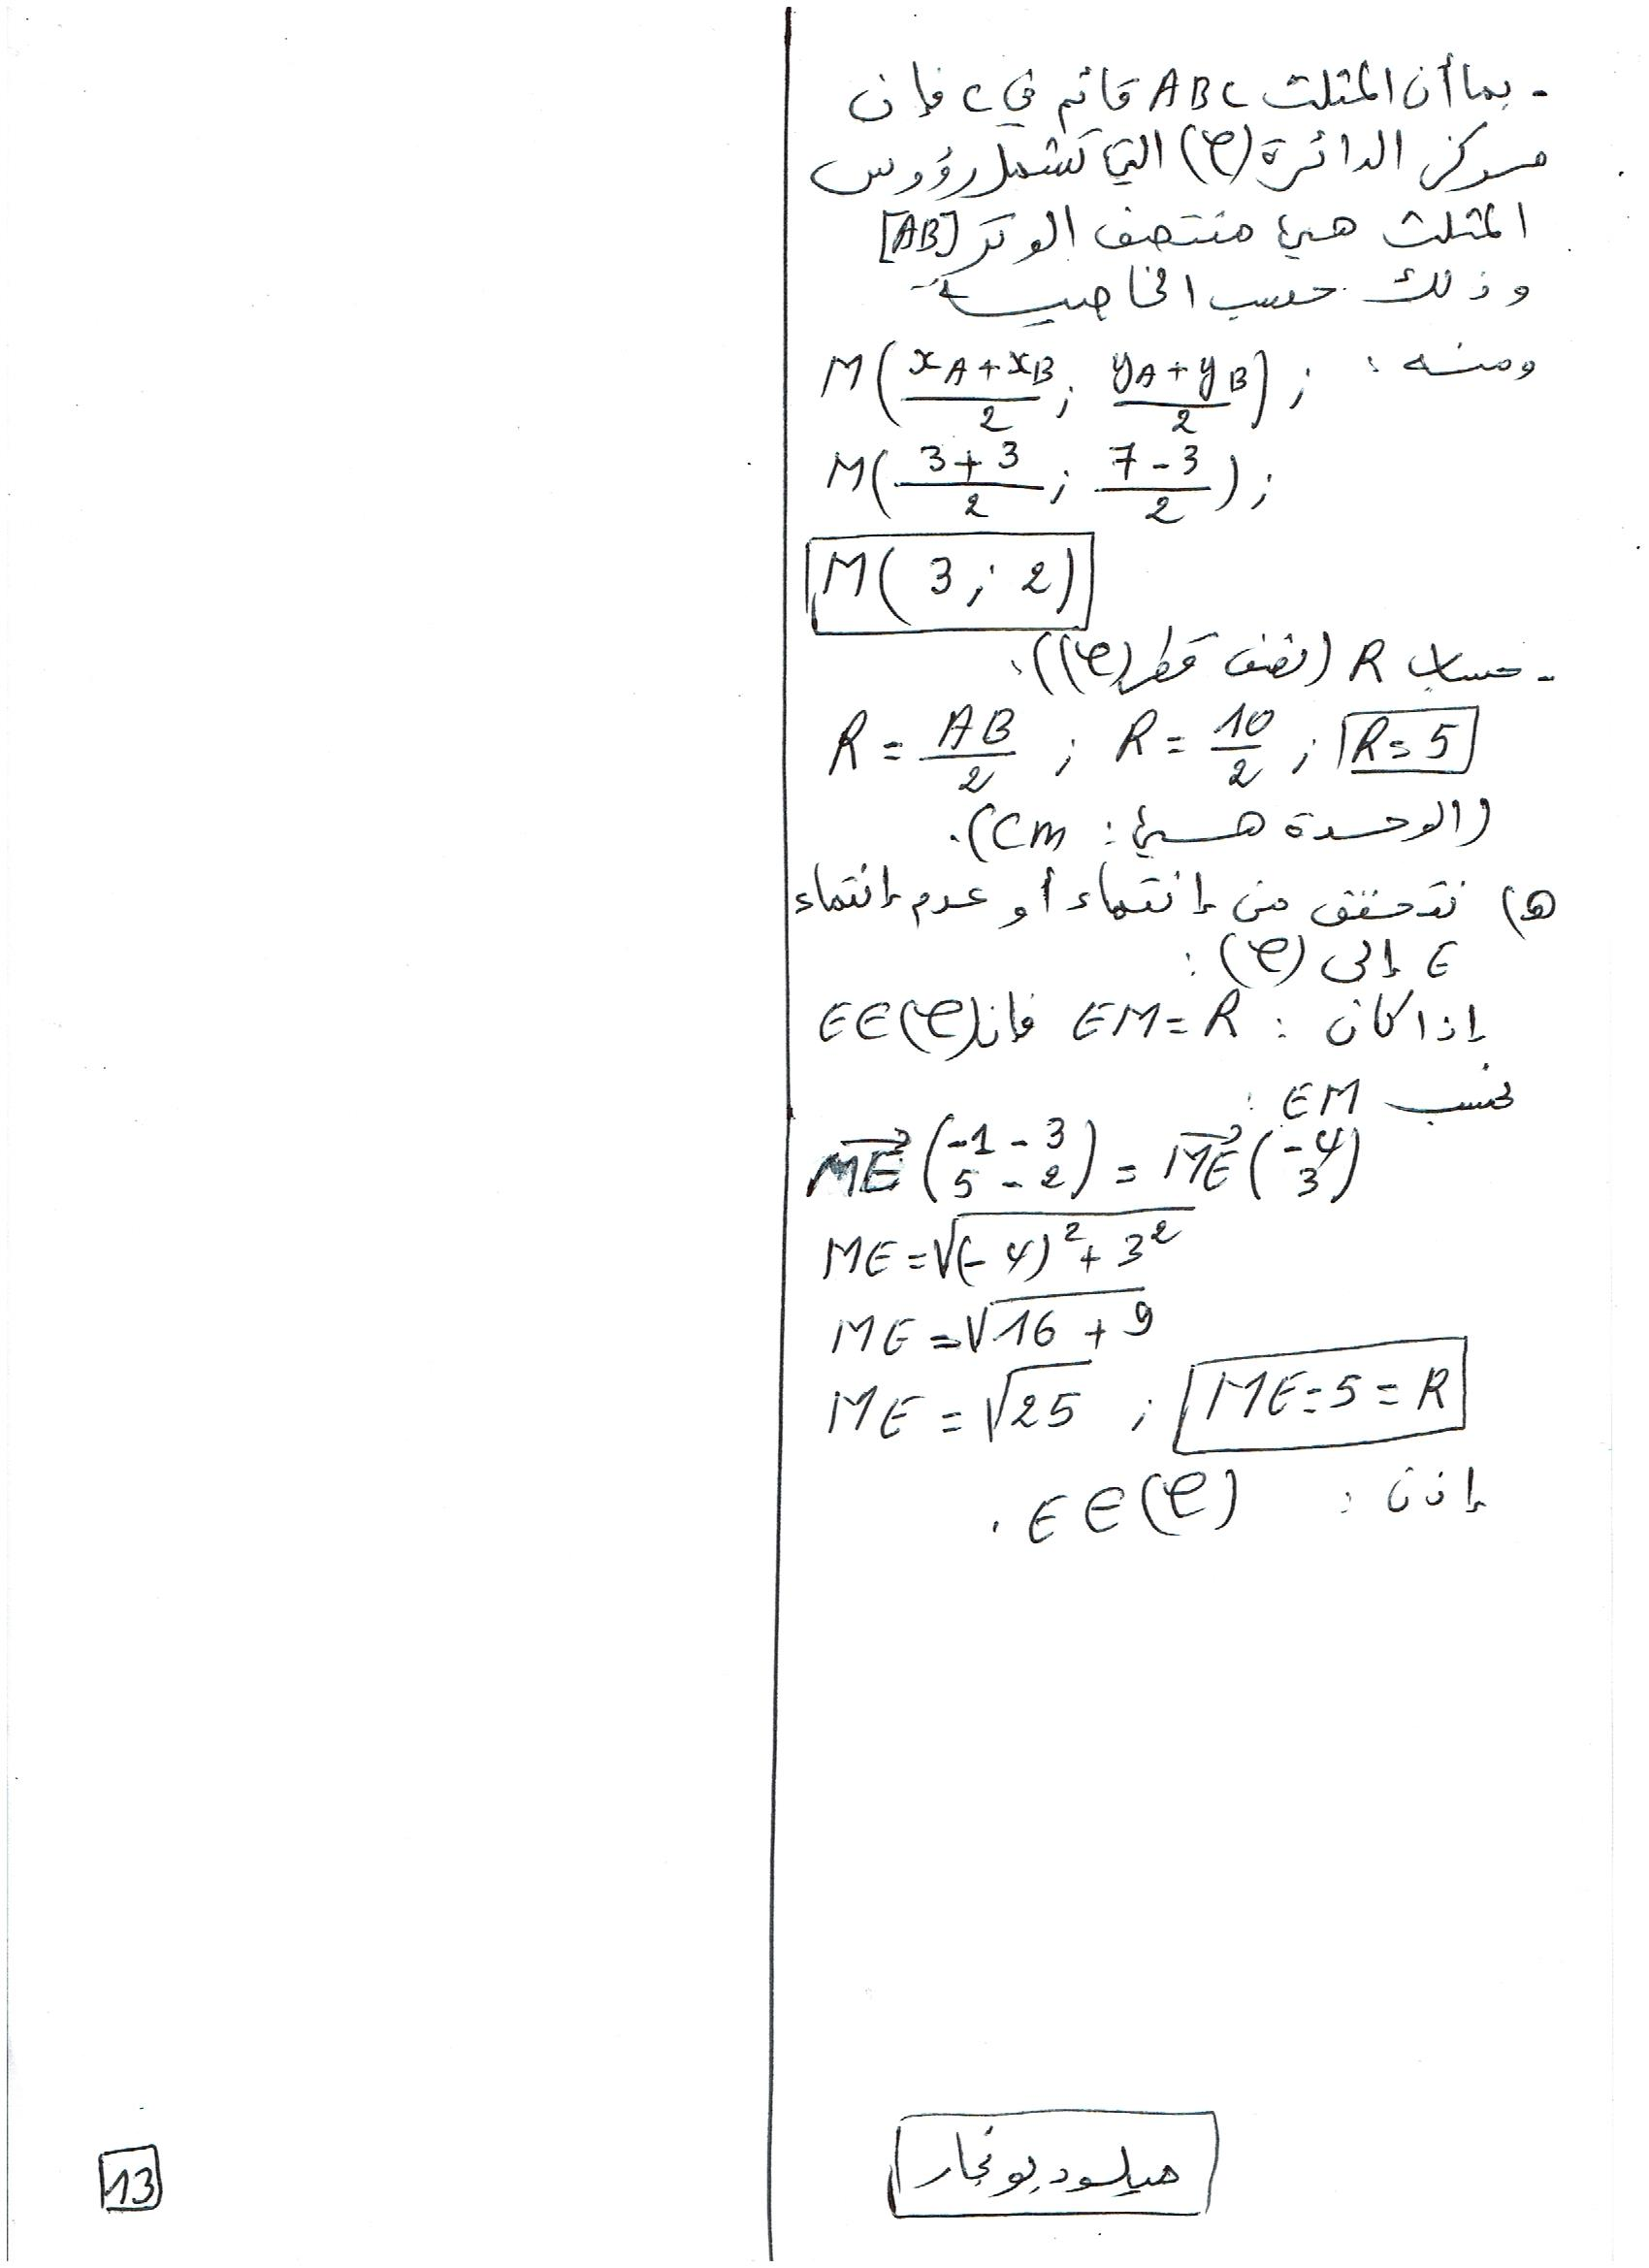 - بما أن المثلث ABC قائم في C فإن
مركز الدائرة (C) التي تشمل رؤوس
المثلث هي منتصف الوتر [AB]
وذلك حسب الخاصية
ومنه : M(xA+xB/2 ; yA+yB/2) ;
M(3+3/2 ; 7-3/2) ;
M(3 ; 2)
- حساب R (نصف قطر (C)) :
R = AB/2 ; R = 10/2 ; R = 5
(الوحدة هي : cm).
ه) نتحقق من إنتماء أو عدم إنتماء
E إلى (C) :
إذا كان : EM = R فإن E∈(C)
نحسب EM :
ME→(-1-3 ; 5-2) = ME→(-4 ; 3)
ME = √(-4)²+3²
ME = √16+9
ME = √25 ; ME = 5 = R
إذن : E∈(C) .
ميلود بونجار
13